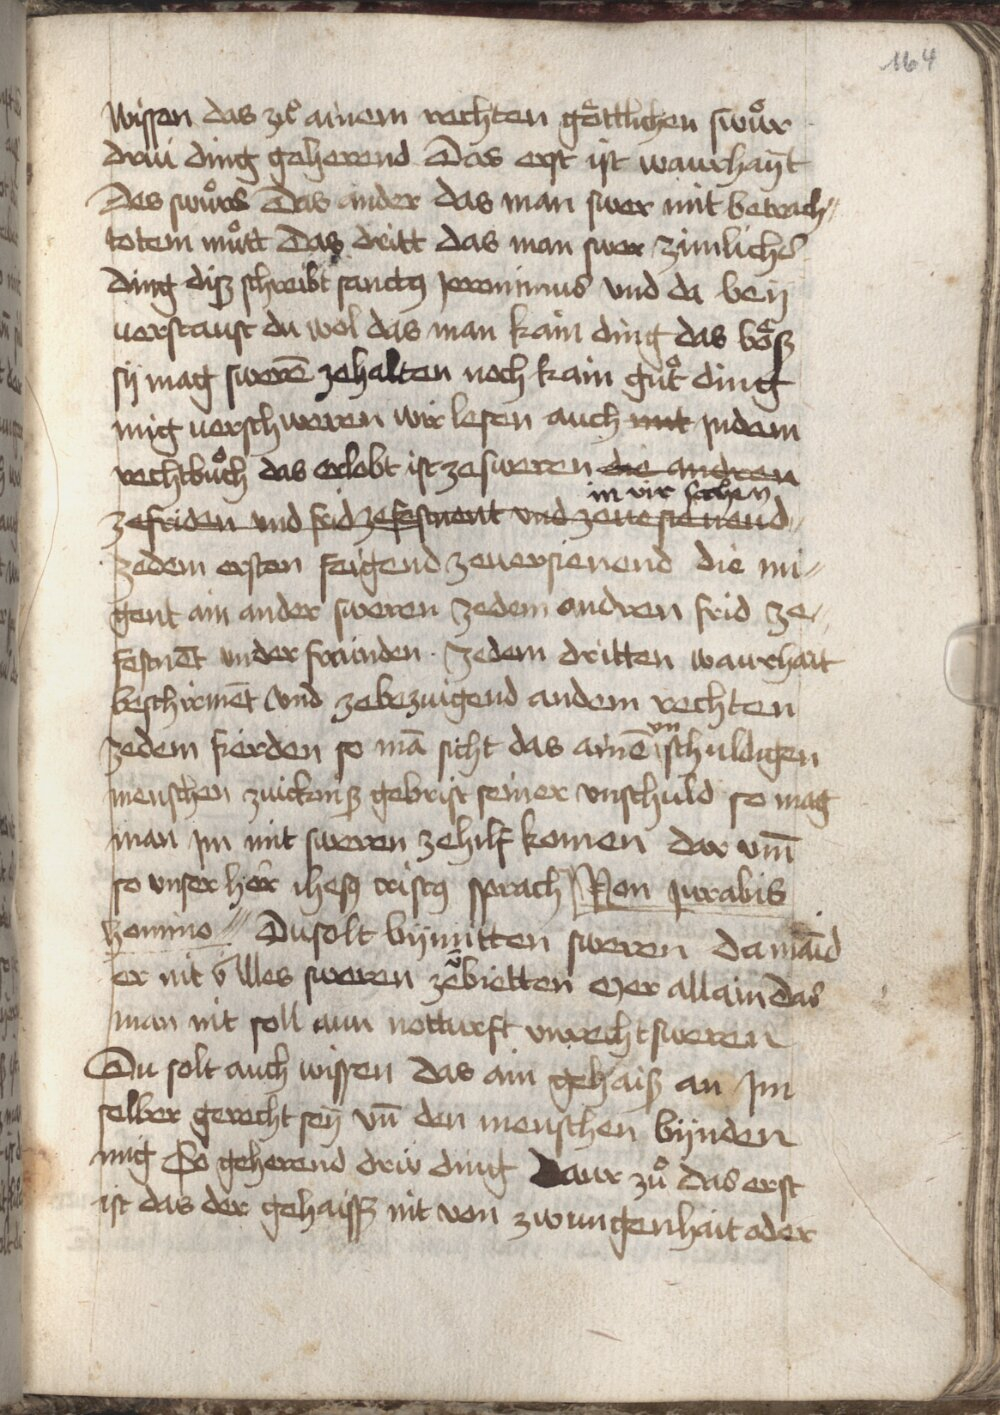 164
wissen das zuͦ ainem rechten goͤttlichen swuͦr
driü ding geherend Das erst ist waurhayt
Des swuͦrs Das ander das man swer mit betrach¬
totem muͦtt Das dritt das man swer zimlichs
ding disz schreibt sanctus Jeronimus vnd da beÿ
verstaust du wol das man kain ding das boͤsz
sÿ mag swerē zehalten noch kain guͦt ding
mug verschweren wir lesen auch mit Jndem
rechtbuͦch das erlobt ist zesweren die andren
in vir sachen
zefriden und frid zefestnent vnd zeuersienend
zedem ersten feigend zeuersienend die mü¬
gent ain ander sweren zedem andren frid ze¬
festnēt vnder fraünden . zedem dritten waurhait
beschirmēt vnd zebezuigend andem rechten
zedem fierden so mā sicht das ainē vnschuldigen
menschen zuicknisz gebrist seiner vnschuld so mag
man Jm mit sweren zehilf komen dar vm̄
so vnser herr ihesus cristus sprach Non Jurabis
homino Du solt bÿmitten sweren Da maind
er nit v̄ Alles sweren zebietten Mer allain das
man nit soll aun notturft vnrecht sweren
Du solt auch wissen das ain gehaisz an Jm
selber gerecht seÿ vn̄ den menschen bÿnden
mug So geherend driü ding Daur zuͦ das erst
ist das der gehaissz nit von zwungenhait oder